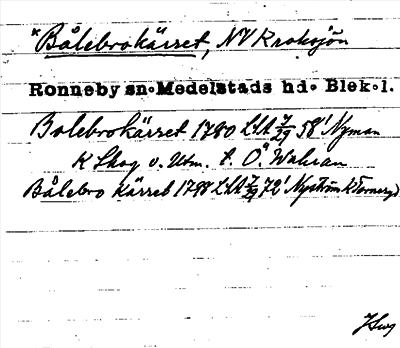 "Bålebrokärret, NV Kroksjön
Ronneby sn. Medelstads hd. Blek. l.
Bolebrokärret 1780 LSA 7/29 58' Nyman
K Skog o. Utm. t. Ö. Walsan
Bålebro kärret 1798 LSA 7/29 72' Nyström K Torneryd